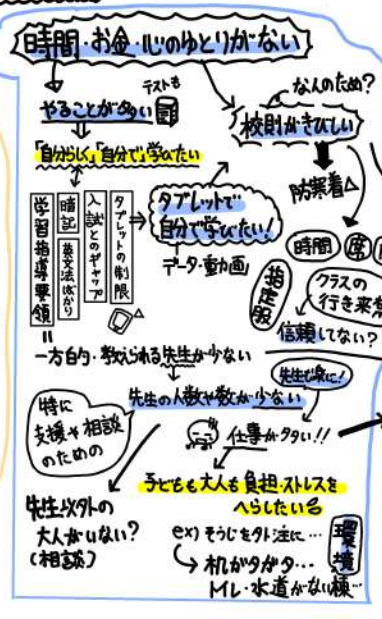 時間・お金・心のゆとりがない
テストも
やることが多い
なんのため?
校則がきびしい
「自分らしく」「自分で」学びたい
防寒着△
学習指導要領
暗記
英文法ばかり
入試とのギャップ
タブレットの制限
タブレットで
自分で学びたい!
データ・動画
時間
席
指定服
クラスの
行き来
信頼してない?
一方的・教えられる先生が少ない
先生の人数や数が少ない
先生も楽に!
特に
支援や相談
のための
仕事が多い!!
子どもも大人も負担・ストレスを
へらしたい
先生以外の
大人がいない?
(相談)
ex) そうじを外注に…
環境
机がガタガタ…
トイレ・水道がない棟…